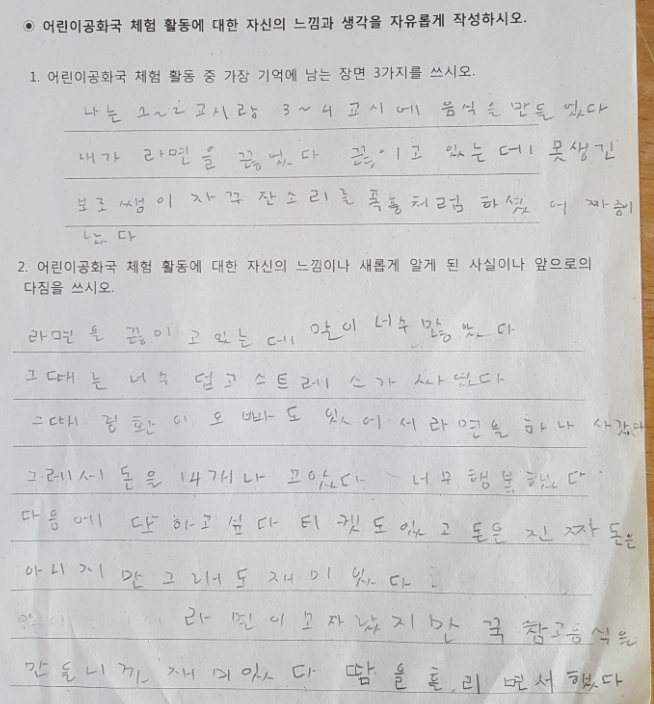 ◉ 어린이공화국 체험 활동에 대한 자신의 느낌과 생각을 자유롭게 작성하시오.
1. 어린이공화국 체험 활동 중 가장 기억에 남는 장면 3가지를 쓰시오.
나는 1~2교시랑 3~4교시에 음식을 만들었다
내가 라면을 끓었다 끓이고 있는데 못생긴
보로쌤이 자꾸 잔소리를 폭풍처럼 하셨어 짜증이
났다
2. 어린이공화국 체험 활동에 대한 자신의 느낌이나 새롭게 알게 된 사실이나 앞으로의
다짐을 쓰시오.
라면을 끓이고 있는데 말이 너무 많았다
그때는 너무 덥고 스트레스가 싸였다
그때 환이 오빠도 있어서 라면을 하나 사갔다
그레서 돈을 14개나 모았다 너무 행복했다
다음에 또 하고 싶다 티켓도 있고 돈은 진짜 돈은
아니지만 그러도 재미있다
라면이 모자랐지만 꾹 참고 음식을
만들니까 재미있다 땀을 흘리면서 했다